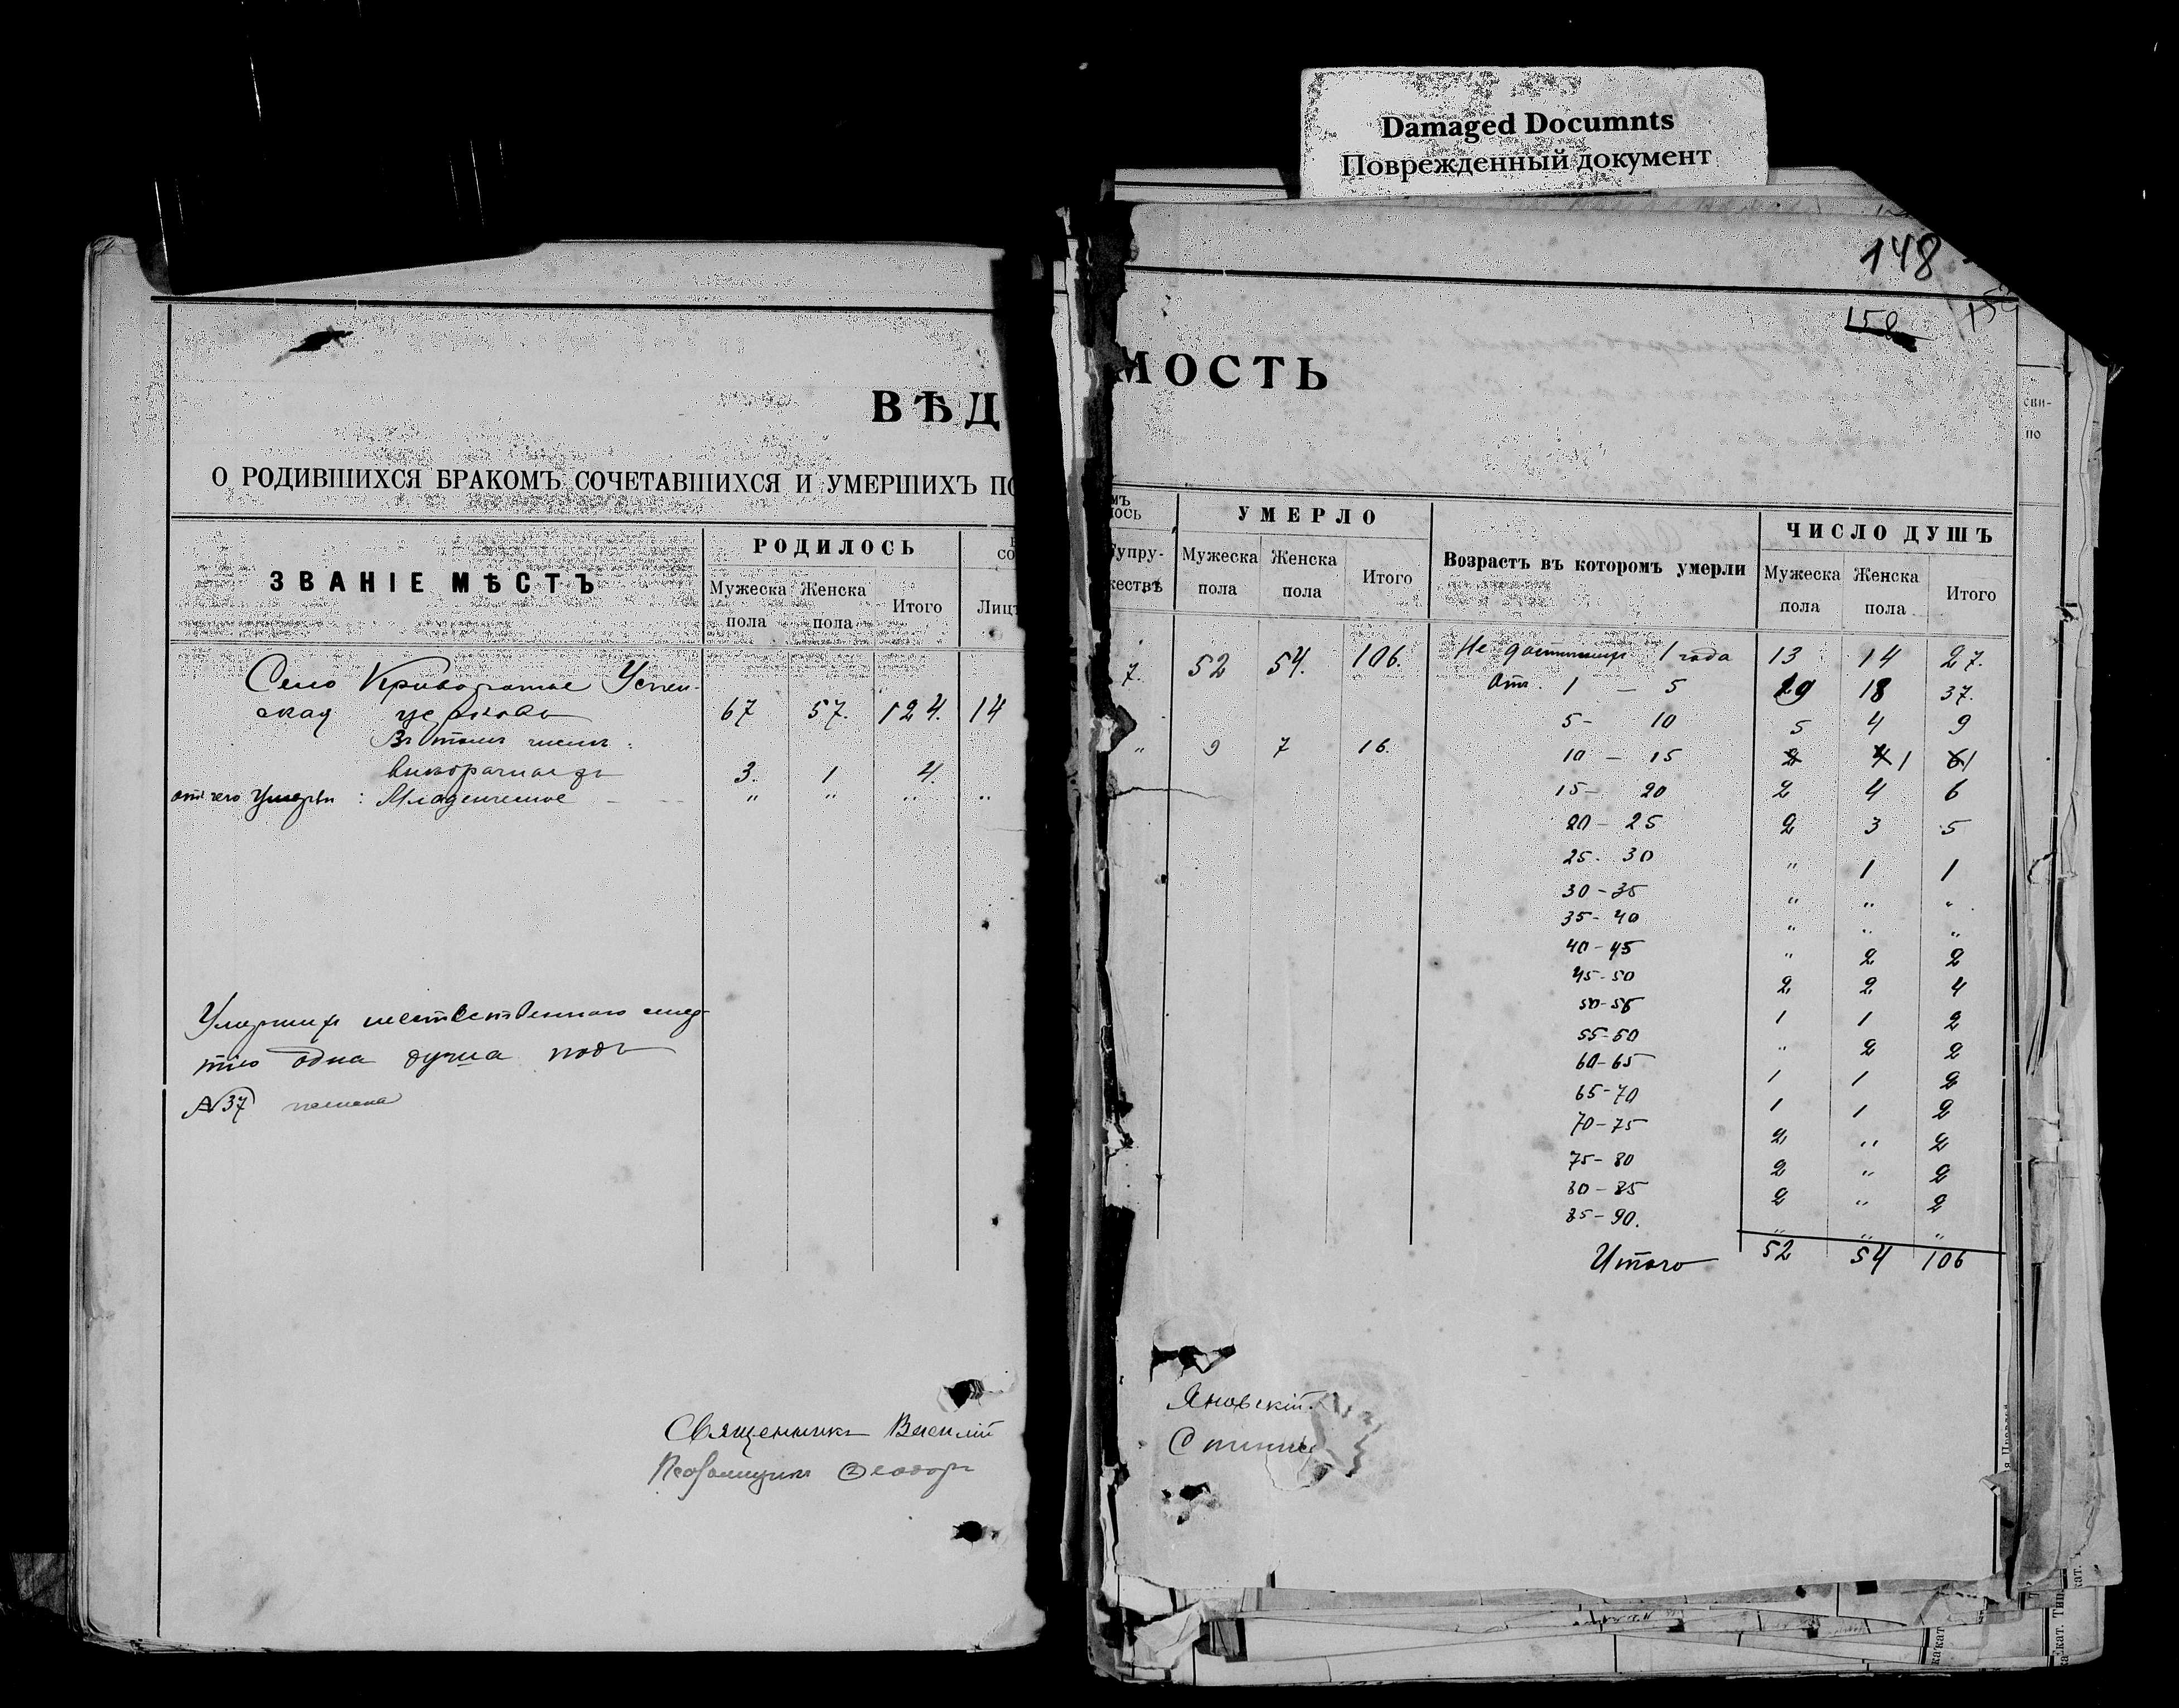 Damaged Documnts
Поврежденный документ
148
ВѢД
О РОДИВШИХСЯ БРАКОМЪ СОЧЕТАВШИХСЯ И УМЕРШИХЪ ПО
ЗВАНІЕ МѢСТЪ
РОДИЛОСЬ
СО
Мужеска пола
Женска пола
Итого
Лицъ
Село Криворотье Успен-
ская церковь 67 57. 124. 14
Въ томъ числѣ:
3. 1 4.
отъ чего умерли: Младенческое „ „ „ „
Умершихъ
одна душа подъ
№37
Священникъ Василій
Псаломщикъ Ѳеодоръ
МОСТЬ
МЪ
ЛОСЬ
Супру-
жествѣ
УМЕРЛО
Мужеска пола
Женска пола
Итого
Возрастъ въ которомъ умерли
ЧИСЛО ДУШЪ
Мужеска пола
Женска пола
Итого
7. 52 54. 106.
„ 9 7 16.
Не достигши 1 года 13 14 27.
Отъ 1 — 5 19 18 37.
5 - 10 5 4 9
10 — 15 1 1
15 — 20 2 4 6
20 — 25 2 3 5
25 - 30 „ 1 1
30 - 35 „ „ „
35 - 40 „ „ „
40 - 45 „ 2 2
45 - 50 2 2 4
50 - 55 1 1 2
55-60 „ 2 2
60-65 1 1 2
65-70 1 1 2
70-75 2 „ 2
75-80 2 „ 2
80-85 2 „ 2
85-90. „ „ „
Итого 52 54 106
Яновскій.
сви-
по